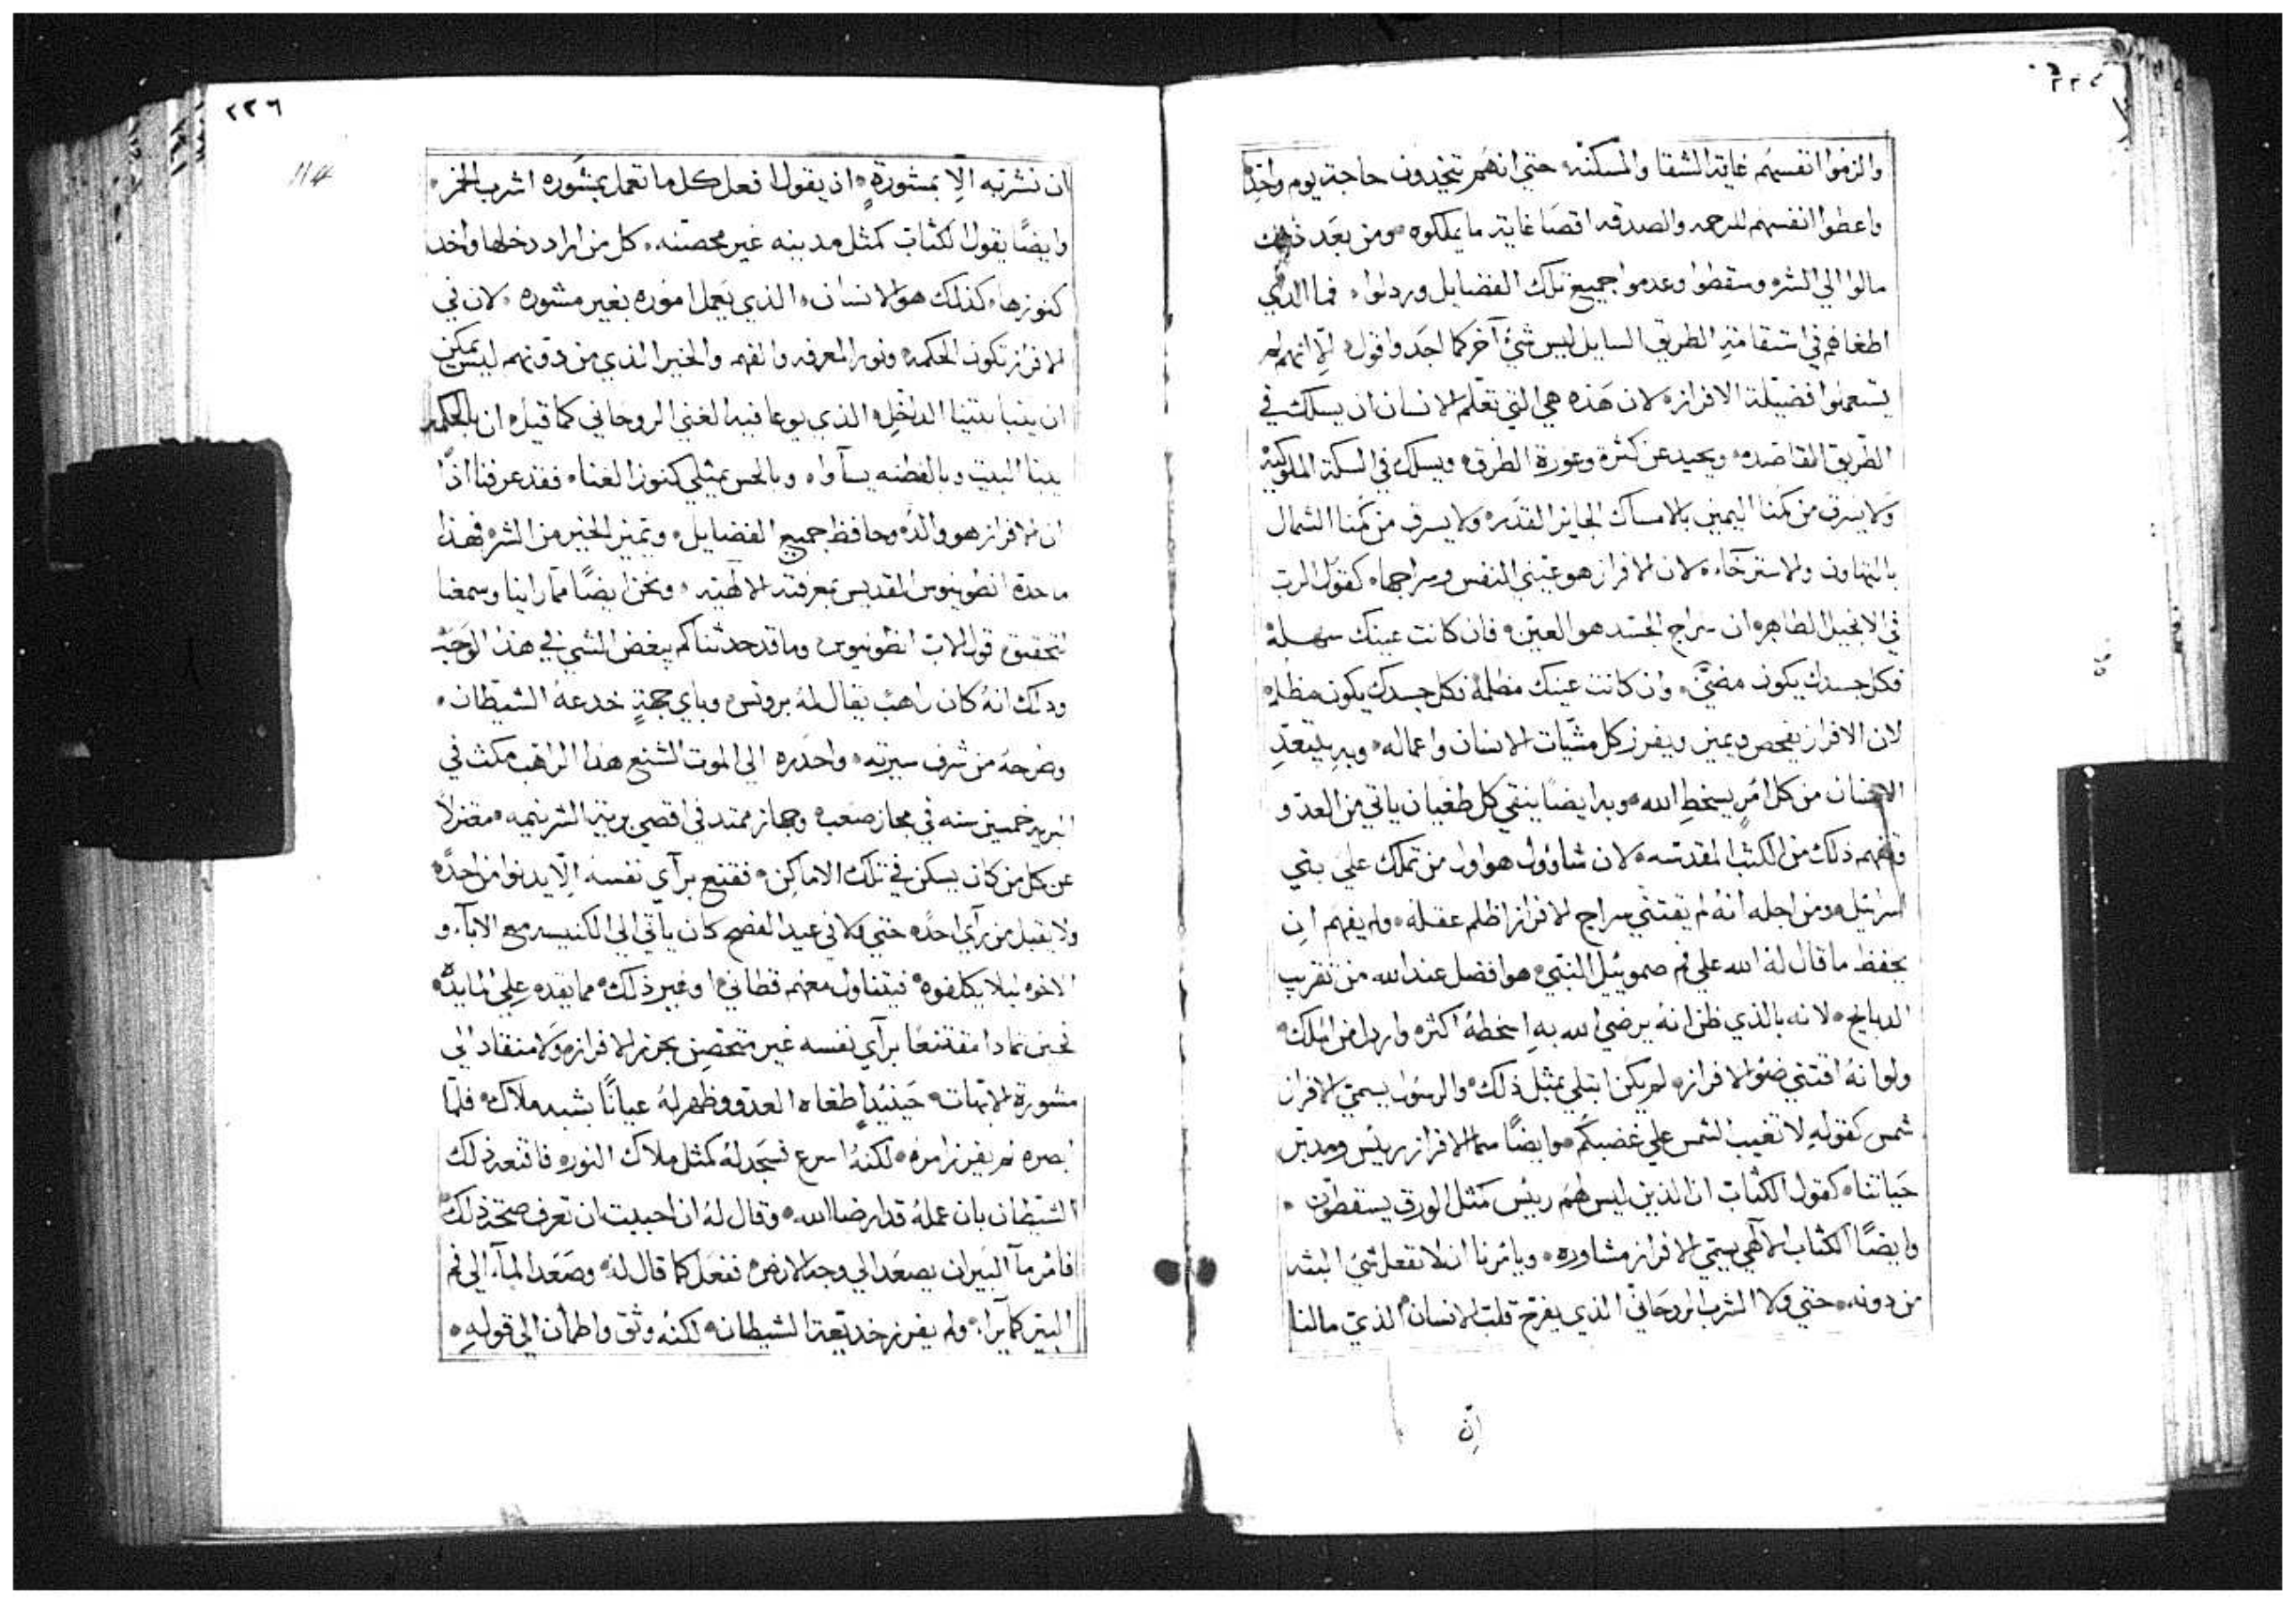 والزموا انفسهم غاية الشقا والمسكنة حتي انهم يتخدون حاجة يوم واحد
واعطوا انفسهم للرحمه والصدقه اقصا غاية ما يملكوه ومن بعد ذلك
مالوا الي الشره وسقطوا وعدموا جميع تلك الفضايل وردلوا فما الذي
اطغاهم في استقامة الطريق السايل ليس شيء آخر كما اجد واقول إلا انهم لم
يستعملوا فضيلة الافراز لان هذه هي التي تعلم الانسان ان يسلك في
الطريق القاصده ويحيد عن كثرة وعورة الطرق ويسلك في السكة الملوكية
ولا يسرق من كمنا اليمين بالامساك الجايز القدر ولا يسرق من كمنا الشمال
بالتهاون والاسترخاء لان الافراز هو عيني النفس وسراجها كقول الرب
في الانجيل الطاهر ان سراج الجسد هو العين فان كانت عينك سهلة
فكل جسدك يكون مضيء وان كانت عينك مظلمة فكل جسدك يكون مظلم
لان الافراز يفحص ويميز ويفرز كل مشيات الانسان واعماله وبه يبتعد
الانسان من كل امر يسخط الله وبه ايضًا ينقي كل طغيان ياتي من العدو
ونفهم ذلك من الكتب المقدسه لان شاوول هو اول من تملك علي بني
اسرايل ومن اجله انه لم يقتني سراج الافراز اظلم عقله ولم يفهم ان
يحفظ ما قال له الله علي فم صموييل النبي هو افضل عند الله من تقريب
الدبايح لانه بالذي ظن انه يرضي الله به اسخطه اكثر وارداض الملك
ولو انه اقتني ضو الافراز لم يكن ابتلي بمثل ذلك والرسول يسمي الافراز
شمس كقوله لا تغيب الشمس علي غضبكم وايضًا سما الافراز رييس ومدبر
حياتنا كقول الكتاب ان الذين ليس لهم رييس كمثل الورق يسقطون
وايضًا الكتاب الآهي يسمي الافراز مشاوره ويامرنا ان لا نفعل شي البته
من دونه حتي ولا الشرب الروحاني الذي يفرح قلب الانسان الذي ما لنا
ان
٢٢٦
114
ان نشربه الا بمشورة اذ يقول افعل كل ما تعمل بمشوره اشرب الخمر
وايضًا يقول الكتاب كمثل مدينه غير محصنه كل من اراد دخلها واخد
كنوزها كذلك هو الانسان الذي يعمل اموره بغير مشوره لان في
الافراز تكون الحكمه ونور المعرفه والفهم والخير الذي من دونهم ليس يمكن
ان يبنا بيتنا الداخل الذي يوعا فيه الغني الروحاني كما قيل ان بالحكمه
يبنا البيت وبالفطنه يساوا وبالحس يمتلي كنوز الغنا فقد عرفنا اذًا
ان الافراز هو والده وحافظ جميع الفضايل ويميز الخير من الشر فهذا
ما حدة انطونيوس القديس بمعرفته الالهيه ونحن ايضًا مما راينا وسمعنا
نحقق قول الاب انطونيوس وما قد حدثناكم ببعض الشي في هذا الوجه
ودلك انه كان راهب يقال له برونس وباي جهة خدعه الشيطان
وطرحه من شرف سيرته واحدره الي الموت الشنع هذا الراهب مكث في
البريه خمسين سنه في مجاز صعب وجهاز ممتد في اقصي برية الشرنيه معتزلًا
عن كل من كان يسكن في تلك الاماكن فقنع برآي نفسه الا يدنوا من احد
ولا يقبل من رآي احد حتي ولا في عيد الفصح كان ياتي الي الكنيسه مع الاباء و
الاخوه ليلا يكلفوه فيتناول معهم قطاني او غير ذلك مما يقدم علي المايدة
فحين تمادا مقتنعًا برآي نفسه غير متحصن بحرز الافراز ولا منقاد الي
مشورة الابهات حينيدٍ اطغاه العدو وظهر له عيانًا بشبه ملاك فلما
ابصره لم يفرز امره لكنه اسرع فسجد له كمثل ملاك النور فاقنعه ذلك
الشيطان بان عمله قد ارضا الله وقال له ان احببت ان تعرف صحة ذلك
فامر مآ البيران يصعد الي وجه الارض ففعل كما قال له وصعد المآء الي فم
البير كما يرا ولم يفرز خديعة الشيطان لكنه وثق واطمان الي قوله